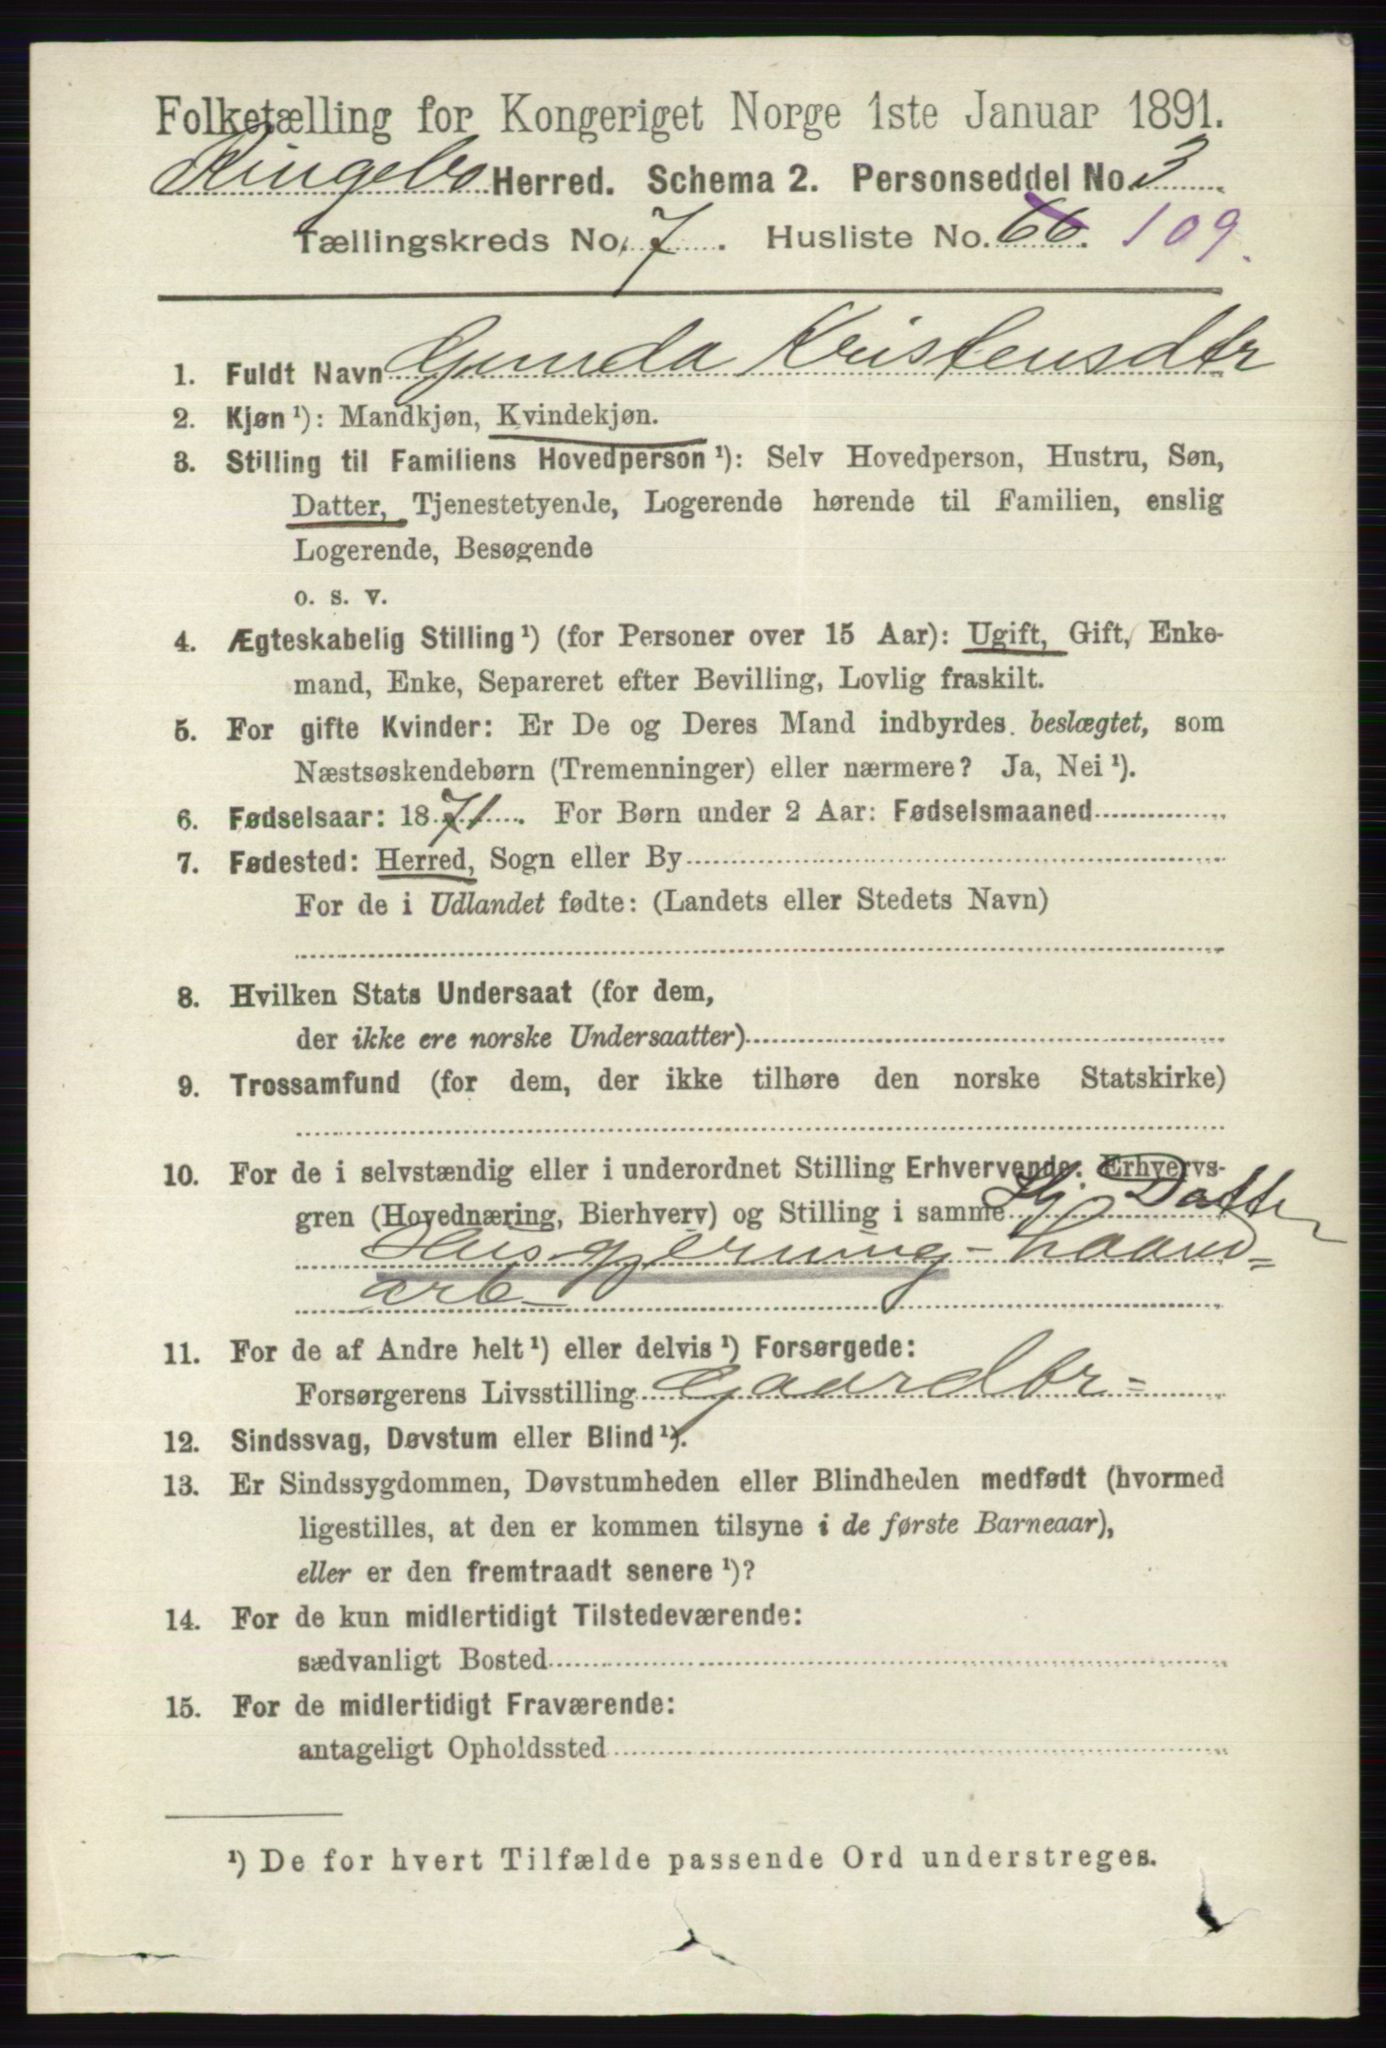 Folketælling for Kongeriget Norge 1ste Januar 1891.
Ringebo Herred. Schema 2. Personseddel No. 3
Tællingskreds No. 7. Husliste No. 66. 109.
1. Fuldt Navn Gunda Kristensdtr
2. Kjøn¹): Mandkjøn, Kvindekjøn.
3. Stilling til Familiens Hovedperson¹): Selv Hovedperson, Hustru, Søn,
Datter, Tjenestetyende, Logerende hørende til Familien, enslig
Logerende, Besøgende
o. s. v.
4. Ægteskabelig Stilling¹) (for Personer over 15 Aar): Ugift, Gift, Enke-
mand, Enke, Separeret efter Bevilling, Lovlig fraskilt.
5. For gifte Kvinder: Er De og Deres Mand indbyrdes beslægtet, som
Næstsøskendebørn (Tremenninger) eller nærmere? Ja, Nei¹).
6. Fødselsaar: 1871. For Børn under 2 Aar: Fødselsmaaned
7. Fødested: Herred, Sogn eller By
For de i Udlandet fødte: (Landets eller Stedets Navn)
8. Hvilken Stats Undersaat (for dem,
der ikke ere norske Undersaatter)
9. Trossamfund (for dem, der ikke tilhøre den norske Statskirke)
10. For de i selvstændig eller i underordnet Stilling Erhvervende: Erhvervs-
gren (Hovednæring, Bierhverv) og Stilling i samme Hj. Datter
Husgjerning - haand=
arb -
11. For de af Andre helt¹) eller delvis¹) Forsørgede:
Forsørgerens Livsstilling Gaardbr -
12. Sindssvag, Døvstum eller Blind¹).
13. Er Sindssygdommen, Døvstumheden eller Blindheden medfødt (hvormed
ligestilles, at den er kommen tilsyne i de første Barneaar),
eller er den fremtraadt senere¹)?
14. For de kun midlertidigt Tilstedeværende:
sædvanligt Bosted
15. For de midlertidigt Fraværende:
antageligt Opholdssted
¹) De for hvert Tilfælde passende Ord understreges.